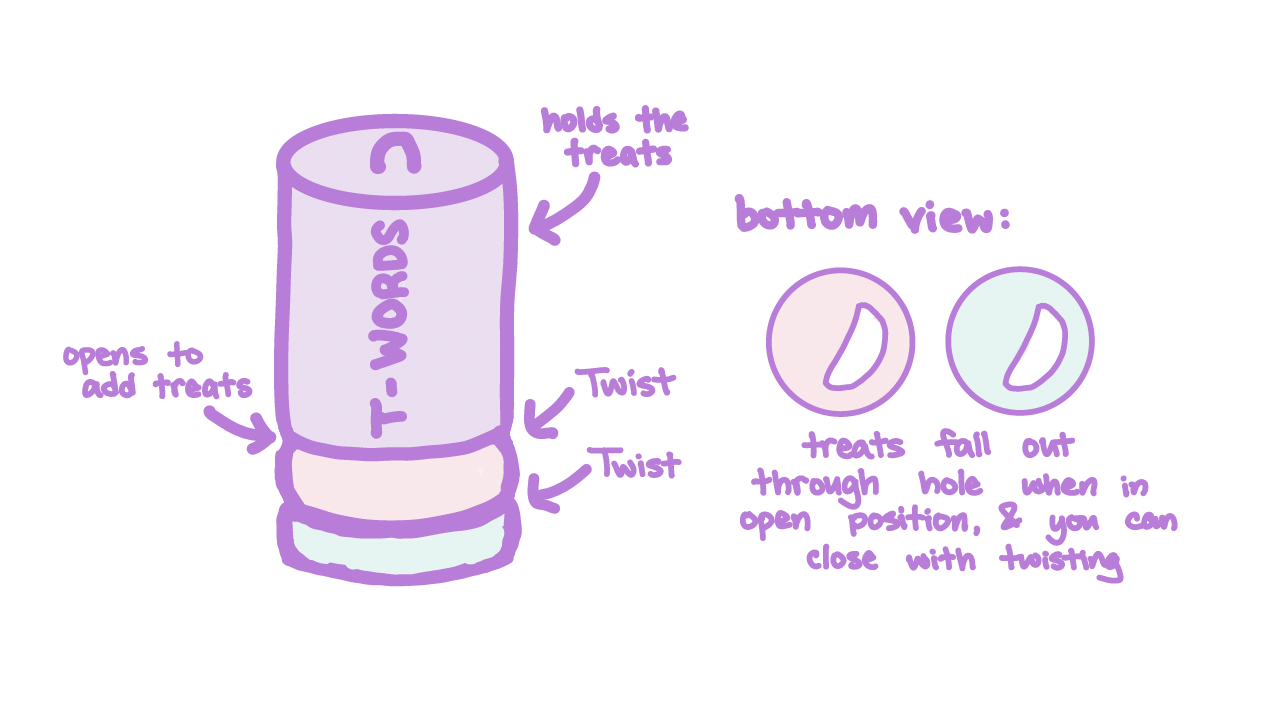 holds the
treats
T-WORDS
opens to
add treats
Twist
Twist
bottom view:
treats fall out
through hole when in
open position, & you can
close with twisting